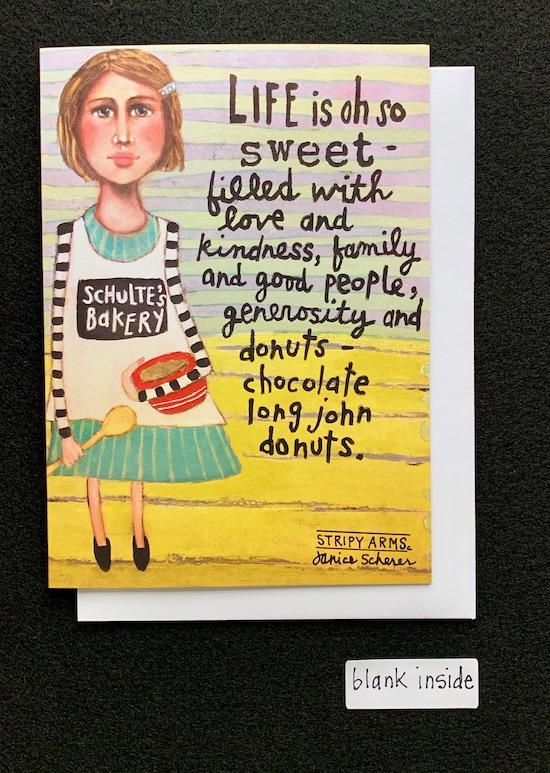 LIFE is oh so
sweet -
filled with
love and
kindness, family
and good people,
generosity and
donuts -
chocolate
long john
donuts.
SCHULTE'S
BAKERY
STRIPY ARMS.
Janice Scherer
blank inside